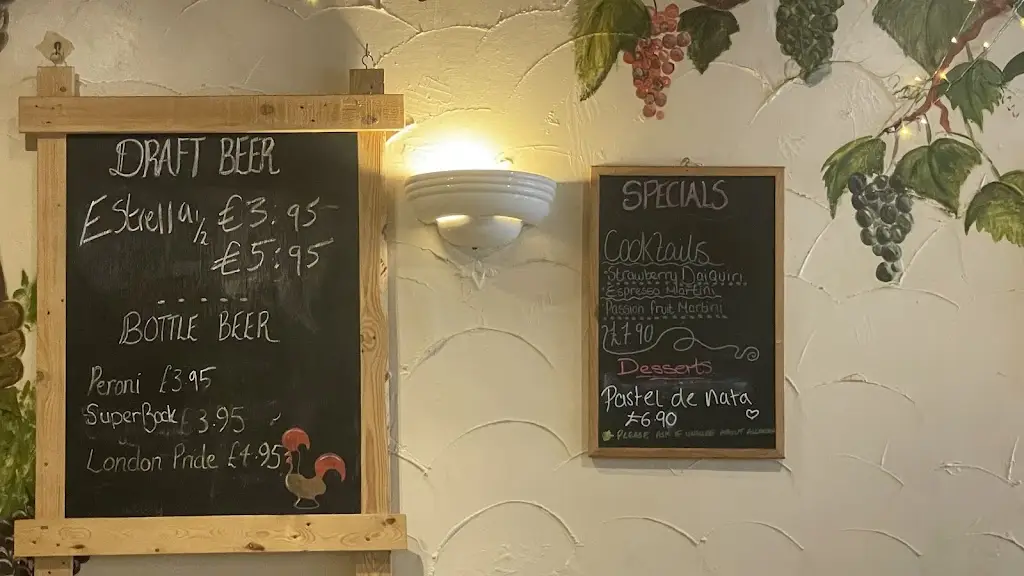 DRAFT BEER
Estrella 1/2 £3.95
£5.95
BOTTLE BEER
Peroni £3.95
SuperBock £3.95
London Pride £4.95
SPECIALS
Cocktails
Strawberry Daiquiri
Espresso Martini
Passion Fruit Martini
£7.90
Desserts
Pastel de nata
£6.90
PLEASE ASK IF UNSURE ABOUT